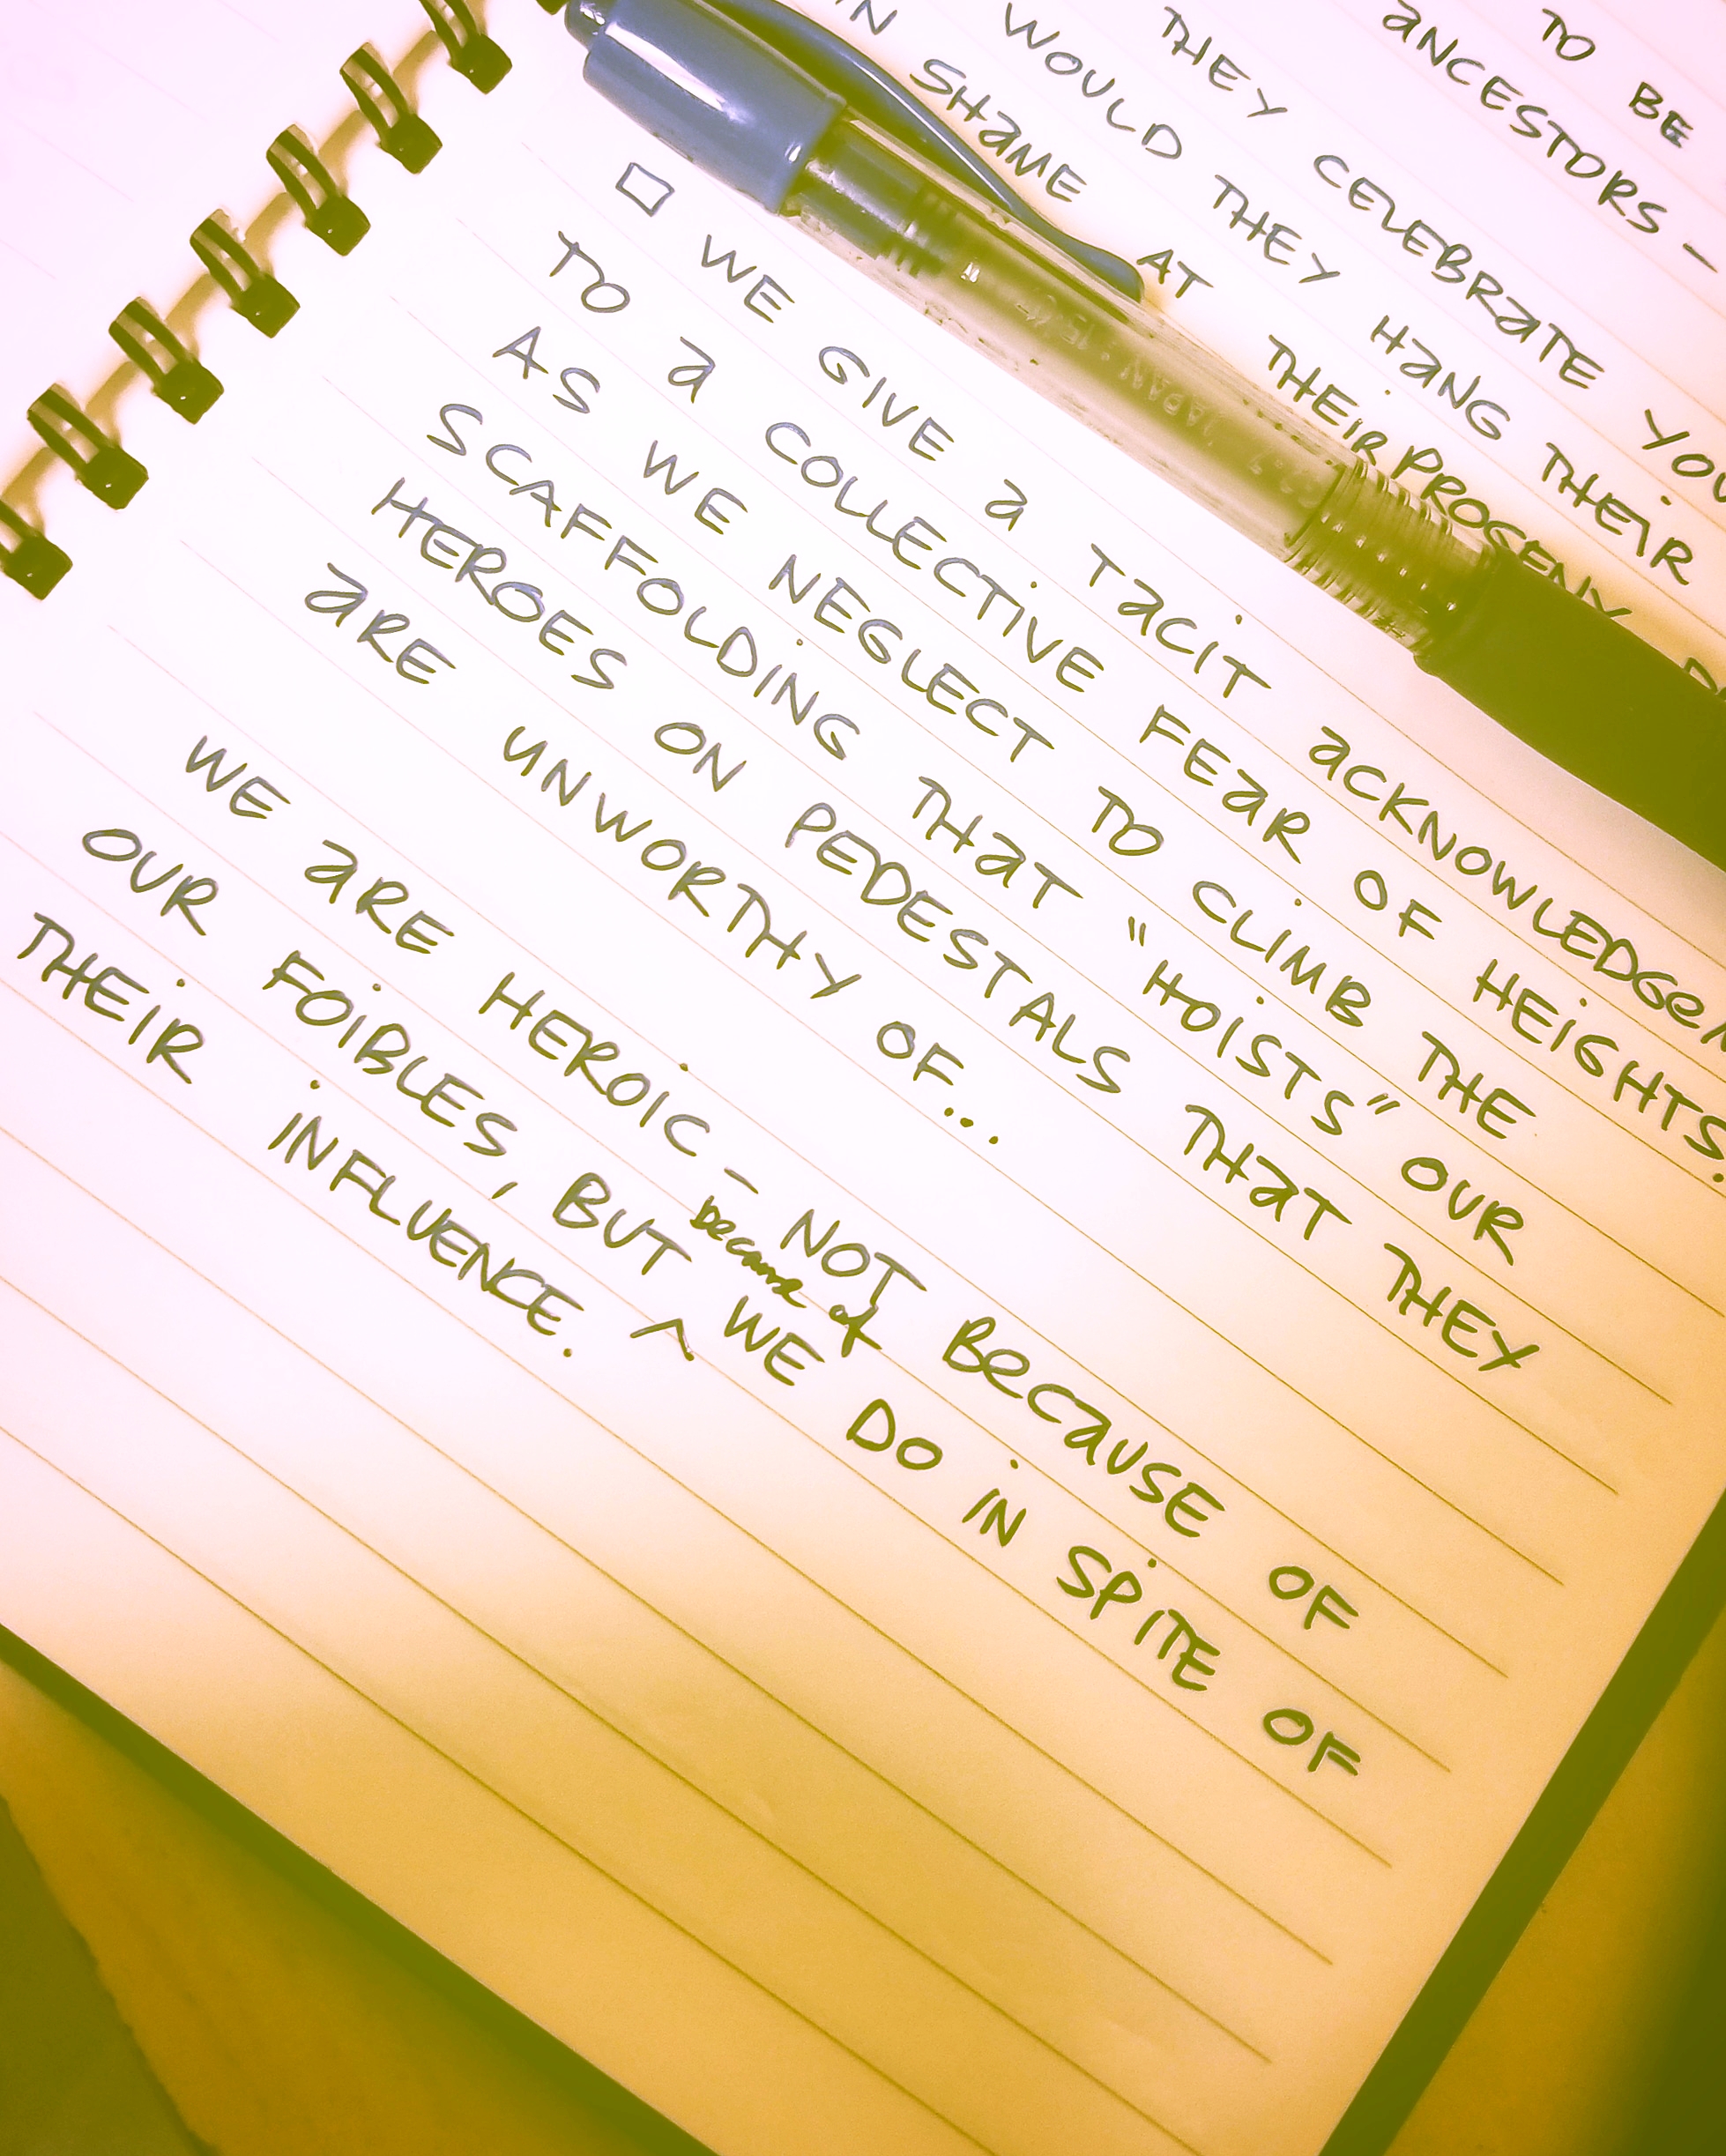 TO BE
ANCESTORS –
THEY CELEBRATE
WOULD THEY HANG THEIR
IN SHAME AT THEIR PROGENY
WE GIVE a TaciT
TO a COLLECTIVE FEaR OF HEIGHTS.
AS WE NEGLECT TO CLIMB THE
SCAFFOLDING THaT "HOISTS" OUR
HEROES ON PEDESTALS THaT THEY
aRE UNWORTHY OF...
WE aRE HEROIC – NOT BeCaUSE OF
because of
OUR FOIBLES, BUT ^ WE DO IN SPITE OF
THEIR INFLUENCE.